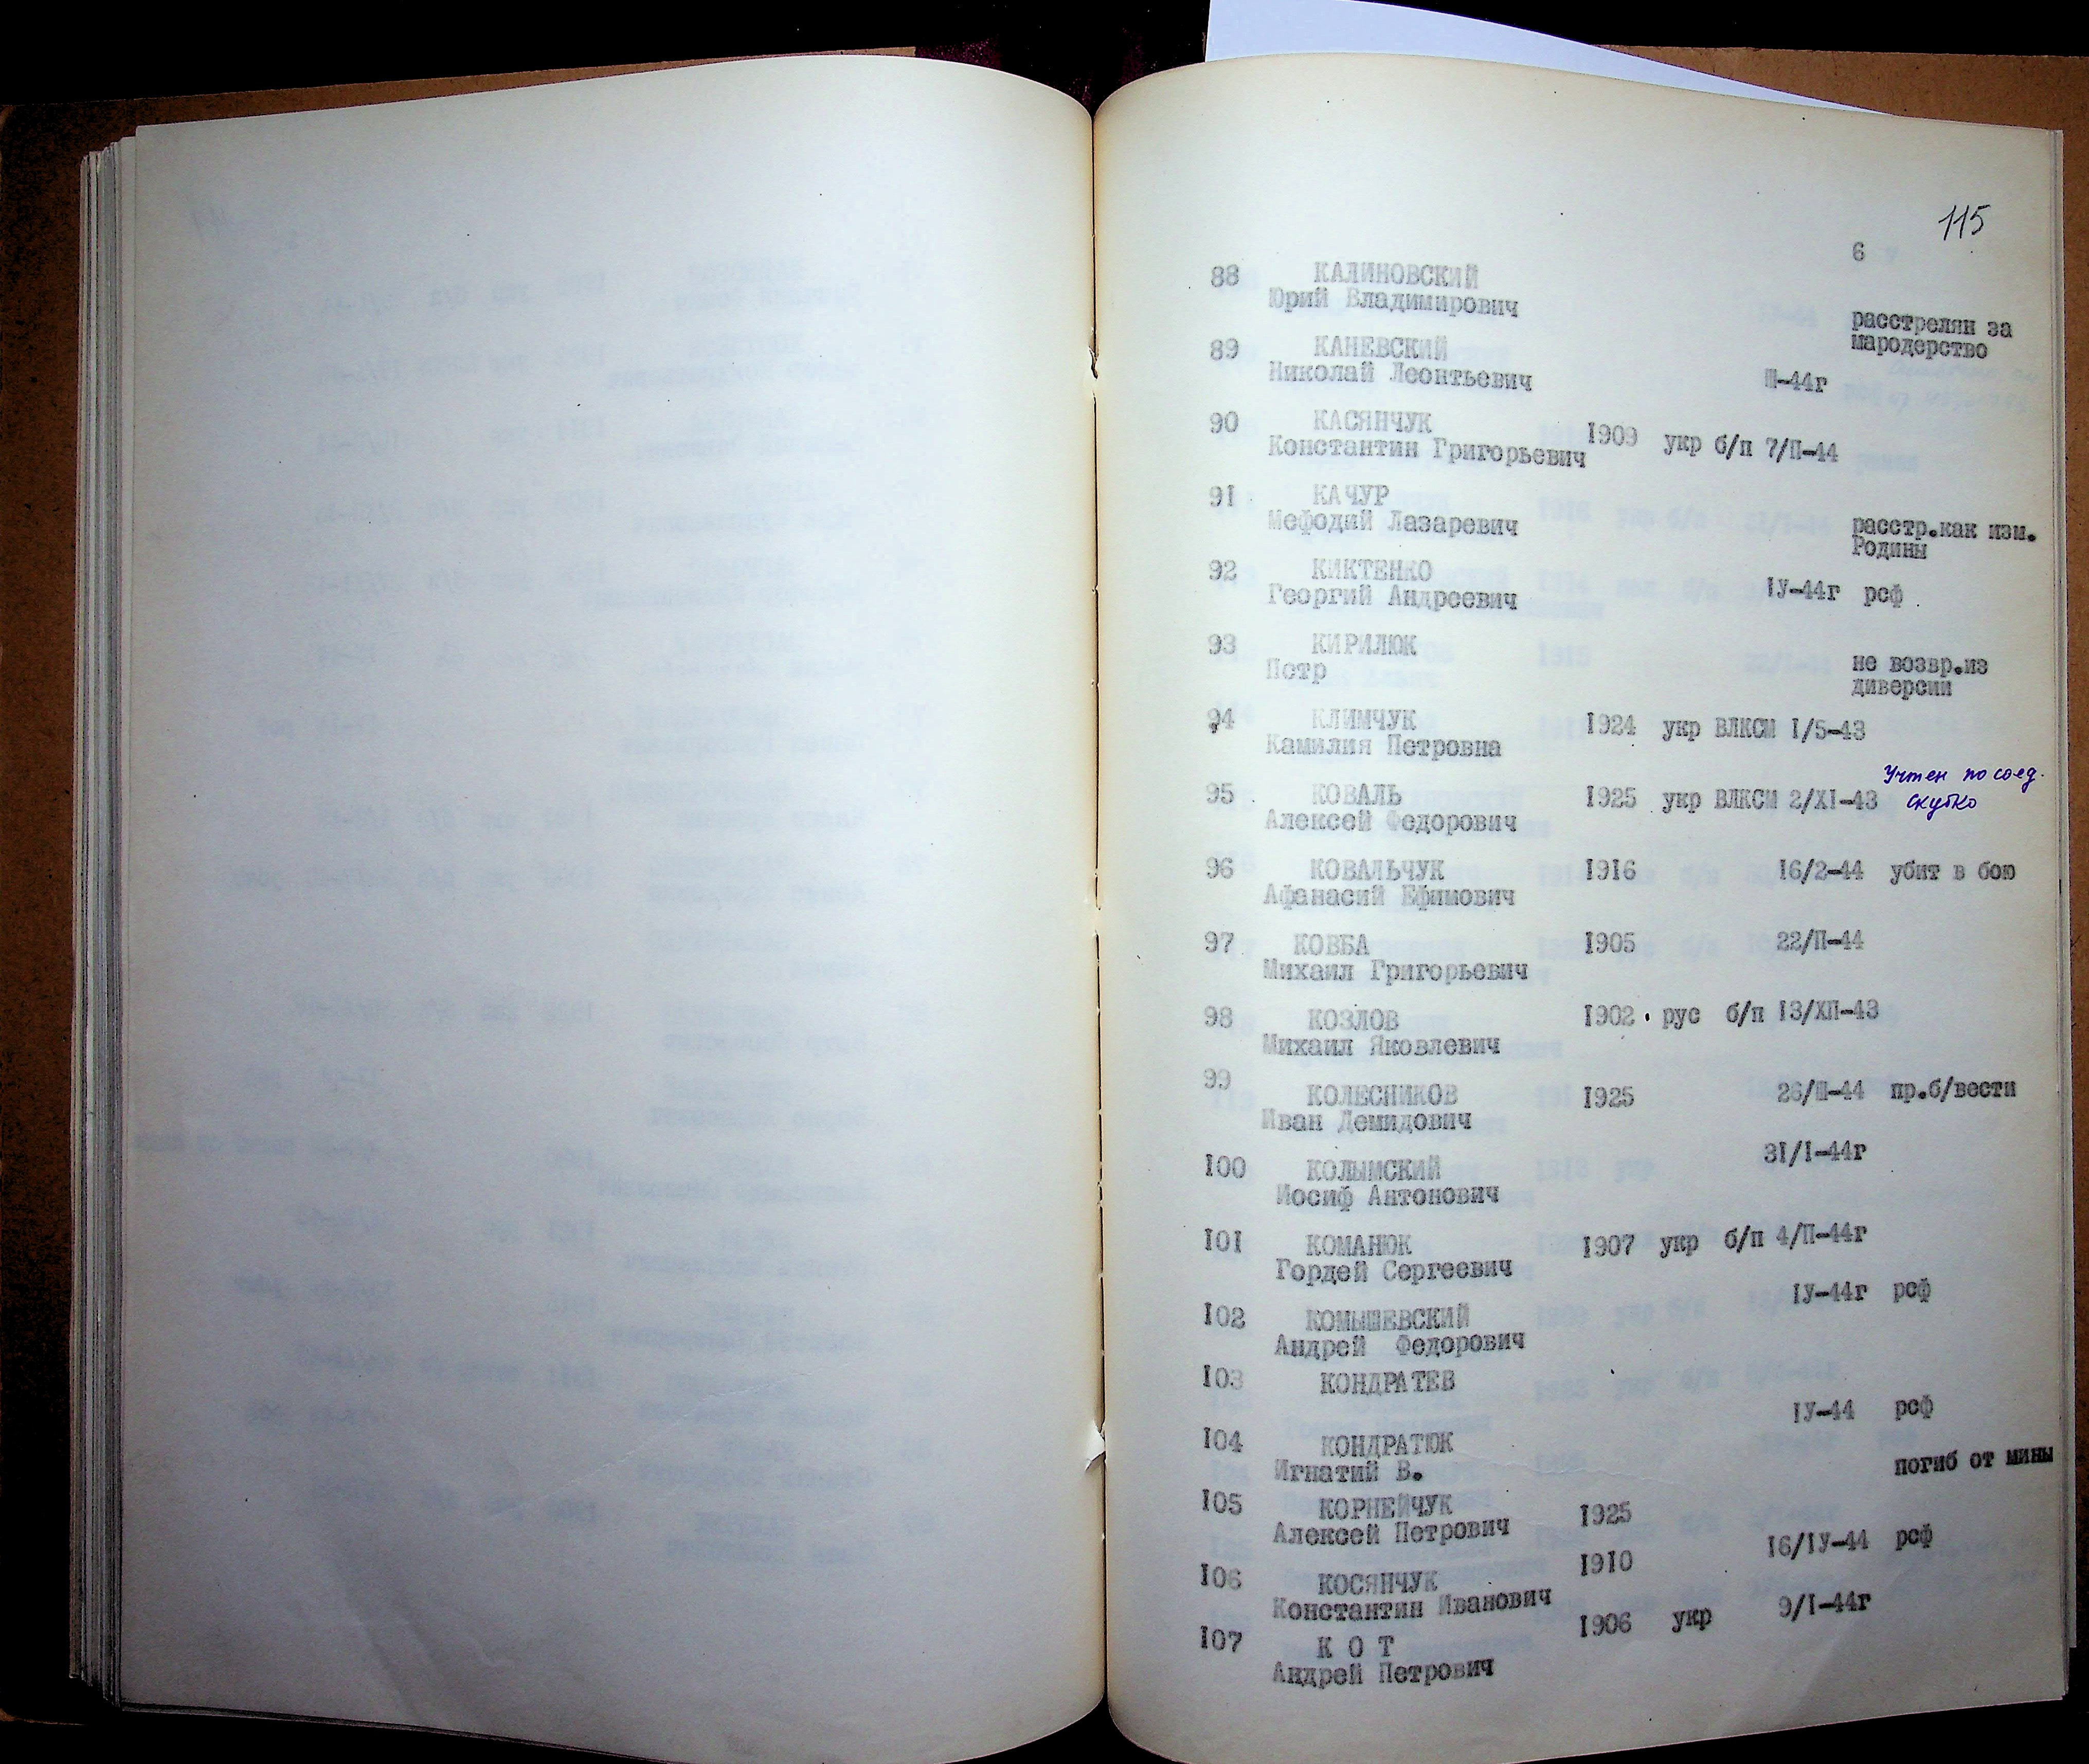 115
6
88 КАЛИНОВСКИЙ
Юрий Владимирович
расстрелян за
мародерство
89 КАНЕВСКИЙ
Николай Леонтьевич Ш-44г
90 КАСЯНЧУК 1909 укр б/п 7/П-44
Константин Григорьевич
91 КАЧУР
Мефодий Лазаревич
расстр.как изм.
Родины
92 КИКТЕНКО
Георгий Андреевич IУ-44г рсф
93 КИРИЛЮК
Петр
не возвр.из
диверсии
94 КЛИМЧУК 1924 укр ВЛКСМ I/5-43
Камилия Петровна
Учтен по соед.
95 КОВАЛЬ 1925 укр ВЛКСМ 2/XI-43 Скубко
Алексей Федорович
96 КОВАЛЬЧУК 1916 16/2-44 убит в бою
Афанасий Ефимович
97 КОВБА 1905 22/П-44
Михаил Григорьевич
98 КОЗЛОВ 1902 рус б/п 13/ХП-43
Михаил Яковлевич
99 КОЛЕСНИКОВ 1925 26/Ш-44 пр.б/вести
Иван Демидович
100 КОЛЫМСКИЙ 31/I-44г
Иосиф Антонович
101 КОМАНЮК 1907 укр б/п 4/П-44г
Гордей Сергеевич
102 КОМЫШЕВСКИЙ IУ-44г рсф
Андрей Федорович
103 КОНДРАТЕВ
IУ-44 рсф
104 КОНДРАТЮК
Игнатий В.
погиб от мины
105 КОРНЕЙЧУК 1925
Алексей Петрович
16/IУ-44 рсф
106 КОСЯНЧУК 1910
Константин Иванович
107 К О Т 1906 укр 9/I-44г
Андрей Петрович